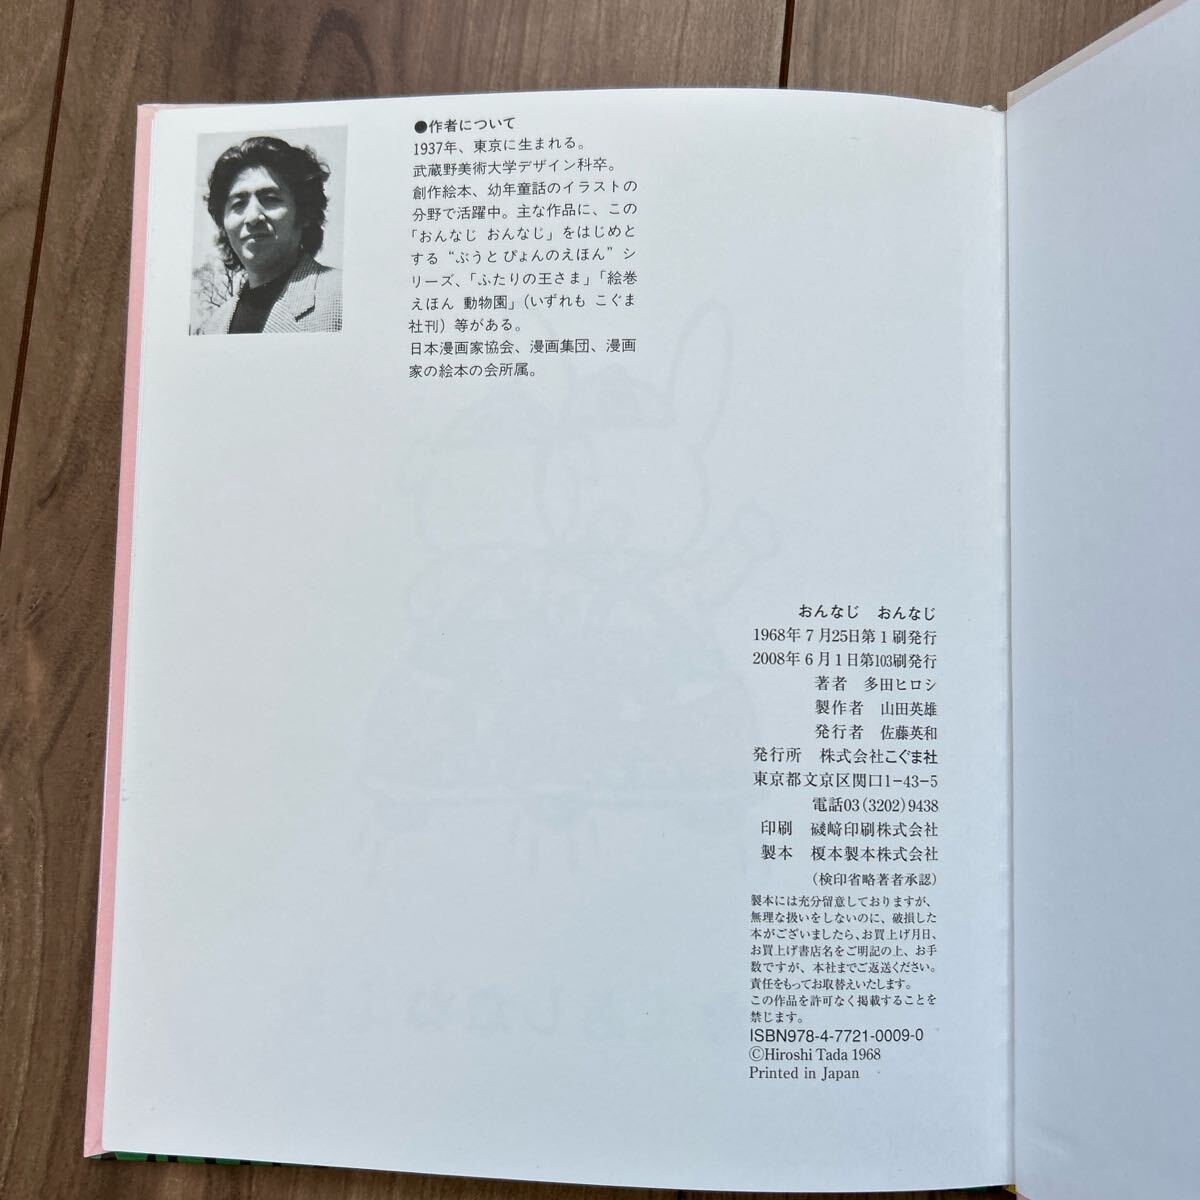 ●作者について
1937年、東京に生まれる。
武蔵野美術大学デザイン科卒。
創作絵本、幼年童話のイラストの
分野で活躍中。主な作品に、この
「おんなじ おんなじ」をはじめと
する“ぶうと ぴょんのえほん”シ
リーズ、「ふたりの王さま」「絵巻
えほん 動物園」（いずれも こぐま
社刊）等がある。
日本漫画家協会、漫画集団、漫画
家の絵本の会所属。
おんなじ　おんなじ
1968年７月25日第１刷発行
2008年６月１日第103刷発行
著者　多田ヒロシ
製作者　山田英雄
発行者　佐藤英和
発行所　株式会社こぐま社
東京都文京区関口1−43−5
電話03(3202)9438
印刷　磯﨑印刷株式会社
製本　榎本製本株式会社
（検印省略著者承認）
製本には充分留意しておりますが、
無理な扱いをしないのに、破損した
本がございましたら、お買上げ月日、
お買上げ書店名をご明記の上、お手
数ですが、本社までご返送ください。
責任をもってお取替えいたします。
この作品を許可なく掲載することを
禁じます。
ISBN978-4-7721-0009-0
©Hiroshi Tada 1968
Printed in Japan